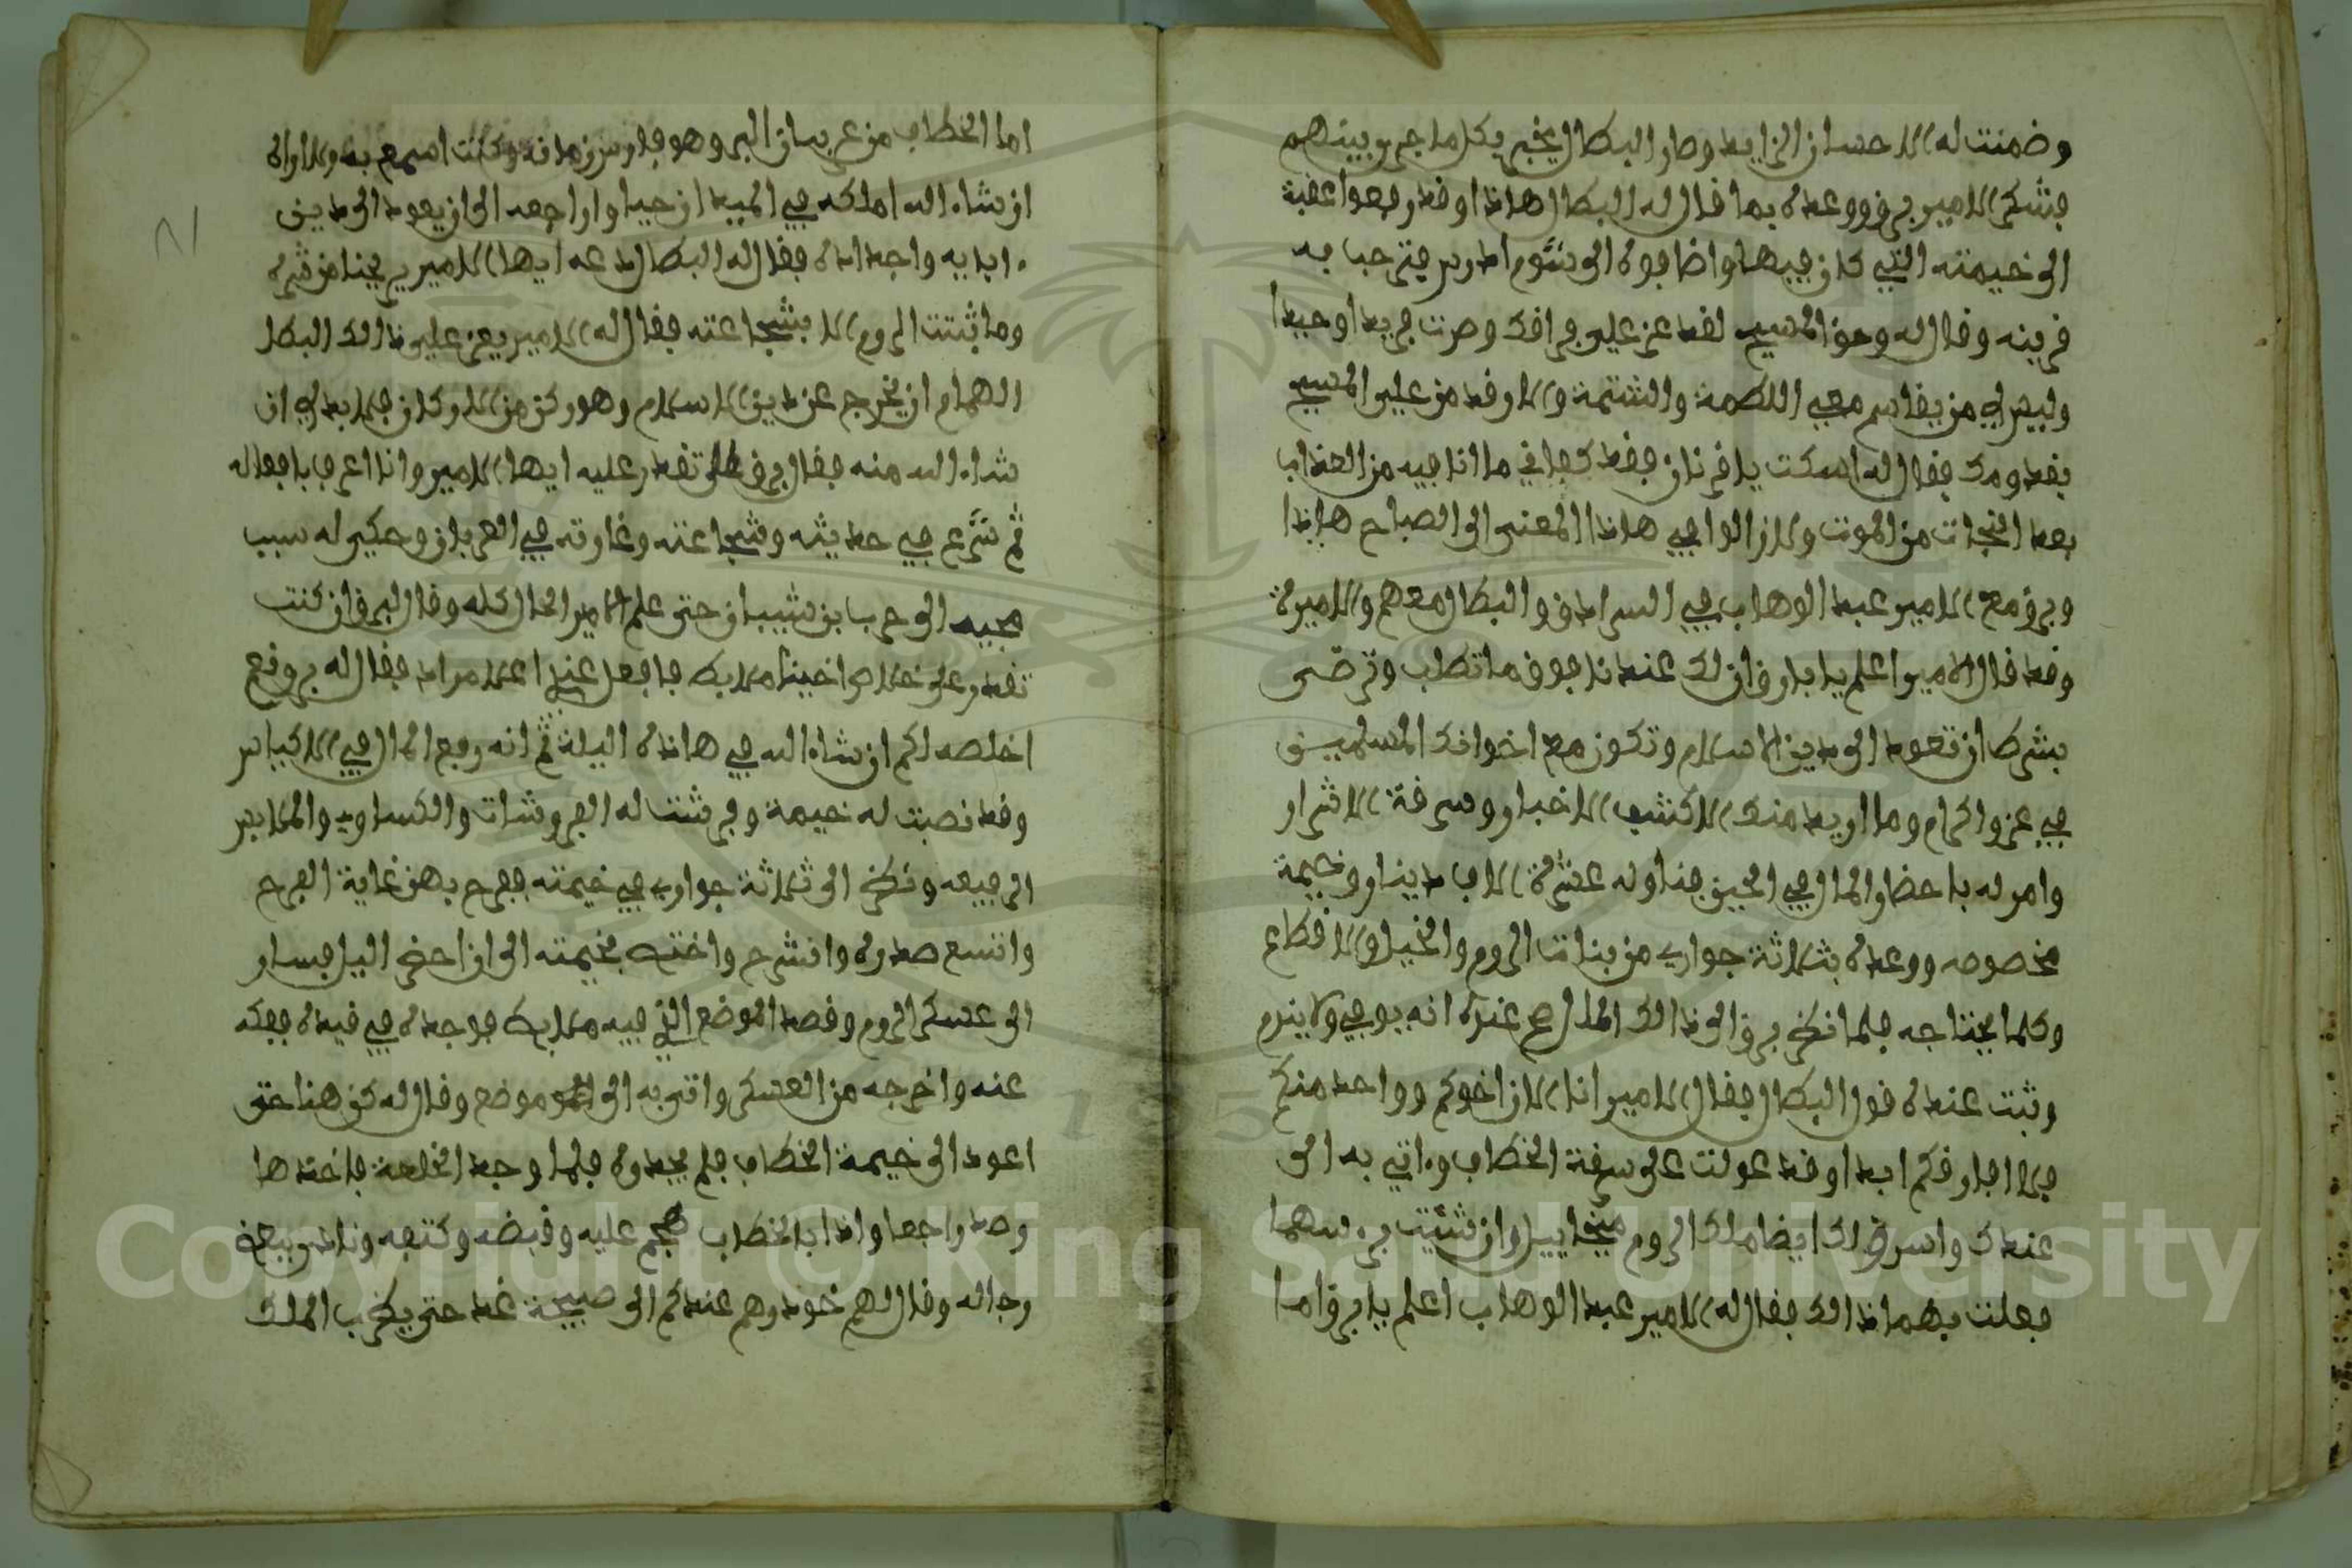 وضمنت له الاحسان الزايد وصار البطال يخبر بكل ما جرى بينهم
فشكر الامير برق ووعده بما قال له البطال هاذا وقد رفعوا عقبة
الى خيمته التي كان فيها واضافوه الى شوم ادريس فترحبا به
قرينه وقال له وحق المسيح لقد عز علي فراقك وصرت فريدا وحيدا
وليس لي من يقاسم معي اللطمة والشتمة والا وقد من علي المسيح
بقدومك فقال له اسكت يا قرنان فقد كفاني ما انا فيه من العذاب
بعد النجات من الموت ولازالوا في هاذا المعنى الى الصباح هاذا
وبرق مع الامير عبد الوهاب في السرادق والبطال معهم والاميرة
وقد قال الامير اعلم يا بارق ان لك عندنا فوق ما تطلب وترضى
بشرط ان تعود الى دين الاسلام وتكون مع اخوانك المسلمين
في عز واكرام وما اريد منك الا كشف الاخبار وسرقة الاشرار
وامر له باحضار المال في الحين فناوله عشرة الاف دينار وخيمة
مخصوصه ووعده بثلاثة جوار من بنات الروم والخيل والاقطاع
وكلما يحتاجه فلما نظر برق الى ذالك المال صح عنده انه يوفي ولا يندم
وثبت عنده قول البطال فقال الامير انا الان اخوكم وواحد منكم
فلا افارقكم ابدا وقد عولت على سرقة الخطاب واتي به الى
عندك واسرق لك ايضا ملك الروم ميخاييل وان شئيت براسهما
فعلت بهما ذالك فقال له الامير عبد الوهاب اعلم يا برق اما
اما الخطاب من عربان البر وهو فارس زمانه وكنت اسمع به ولا اراه
ان شاء الله املكه في الميدان حيا واراجعه الى ان يعود الى دين
ءابايه واجداده فقال له البطال دعه ايها الامير يريحنا من شره
وما ثبتت الروم الا بشجاعته فقال له الامير يعز علي ذالك البطل
الهمام ان يخرج عن دين الاسلام وهو ركن من الاركان فلا بد لي ان
شاء الله منه فقال برق تقدر عليه ايها الامير وانا اعرف بافعاله
ثم شرع في حديثه وشجاعته وغارته في العربان وحكى له سبب
مجيه الى حرب بن شيبان حتى علم الامير الحال كله وقال لبرق ان كنت
تقدر على خلاص اخينا ملابك فافعل عندي اعلا مراد فقال له برق نعم
اخلصه لكم ان شاء الله في هاذه اليلة ثم انه رفع المال في الاكياس
وقد نصبت له خيمة وفرشت له الفروشات والكساوي والملابس
الرفيعه ونظر الى ثلاثة جوار في خيمته ففرح بهن غاية الفرح
واتسع صدره وانشرح واختفى بخيمته الى ان احضر اليل فسار
الى عسكر الروم وقصد الموضع الذي فيه ملابك فوجده في قيده ففكه
عنه واخرجه من العسكر واتى به الى موضع وقال له كن هنا حتى
اعود الى خيمة الخطاب فلم يجده فلما وجد الخلعة فاخذها
وصد راجعا واذا بالخطاب هجم عليه وقبضه وكتفه ونادى ببعض
رجاله وقال لهم خوذوهم عندكم الى صبيحة غد حتى يضرب الملك